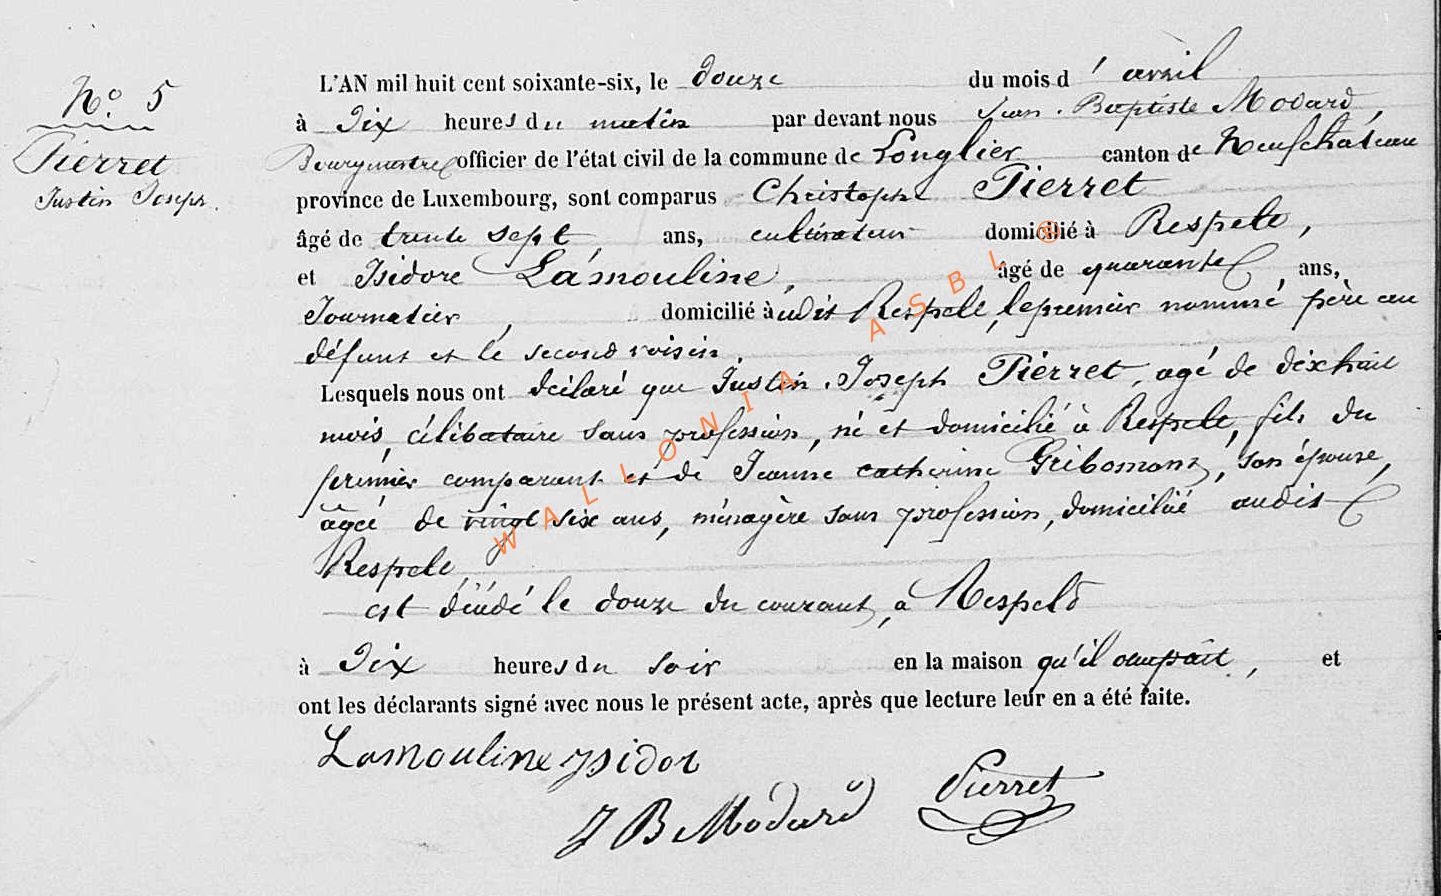 N.º 5
Pierret
Justin Joseph.
L'AN mil huit cent soixante-six, le douze du mois d'avril
à Dix heures du matin par devant nous Jean-Baptiste Modard,
Bourgmestre officier de l'état civil de la commune de Longlier canton de Neufchâteau
province de Luxembourg, sont comparus Christophe Pierret
âgé de trente sept, ans, cultivateur domicilié à Respelt,
et Isidore Lamouline, âgé de quarante ans,
Journalier, domicilié à udit Respelt, le premier nommé père au
défunt et le second voisin.
Lesquels nous ont déclaré que Justin Joseph Pierret, agé de dixhuit
mois, célibataire sans profession, né et domicilié à Respelt, fils du
premier comparant et de Jeanne Catherine Gribomont, son épouse,
âgée de vingt six ans, ménagère sans profession, domiciliée audit
Respelt
est décédé le douze du courant, à Respelt
à Dix heures du soir en la maison qu'il occupait, et
ont les déclarants signé avec nous le présent acte, après que lecture leur en a été faite.
Lamouline Isidor
J B Modard
Pierret
WALLONIA ASBL ®